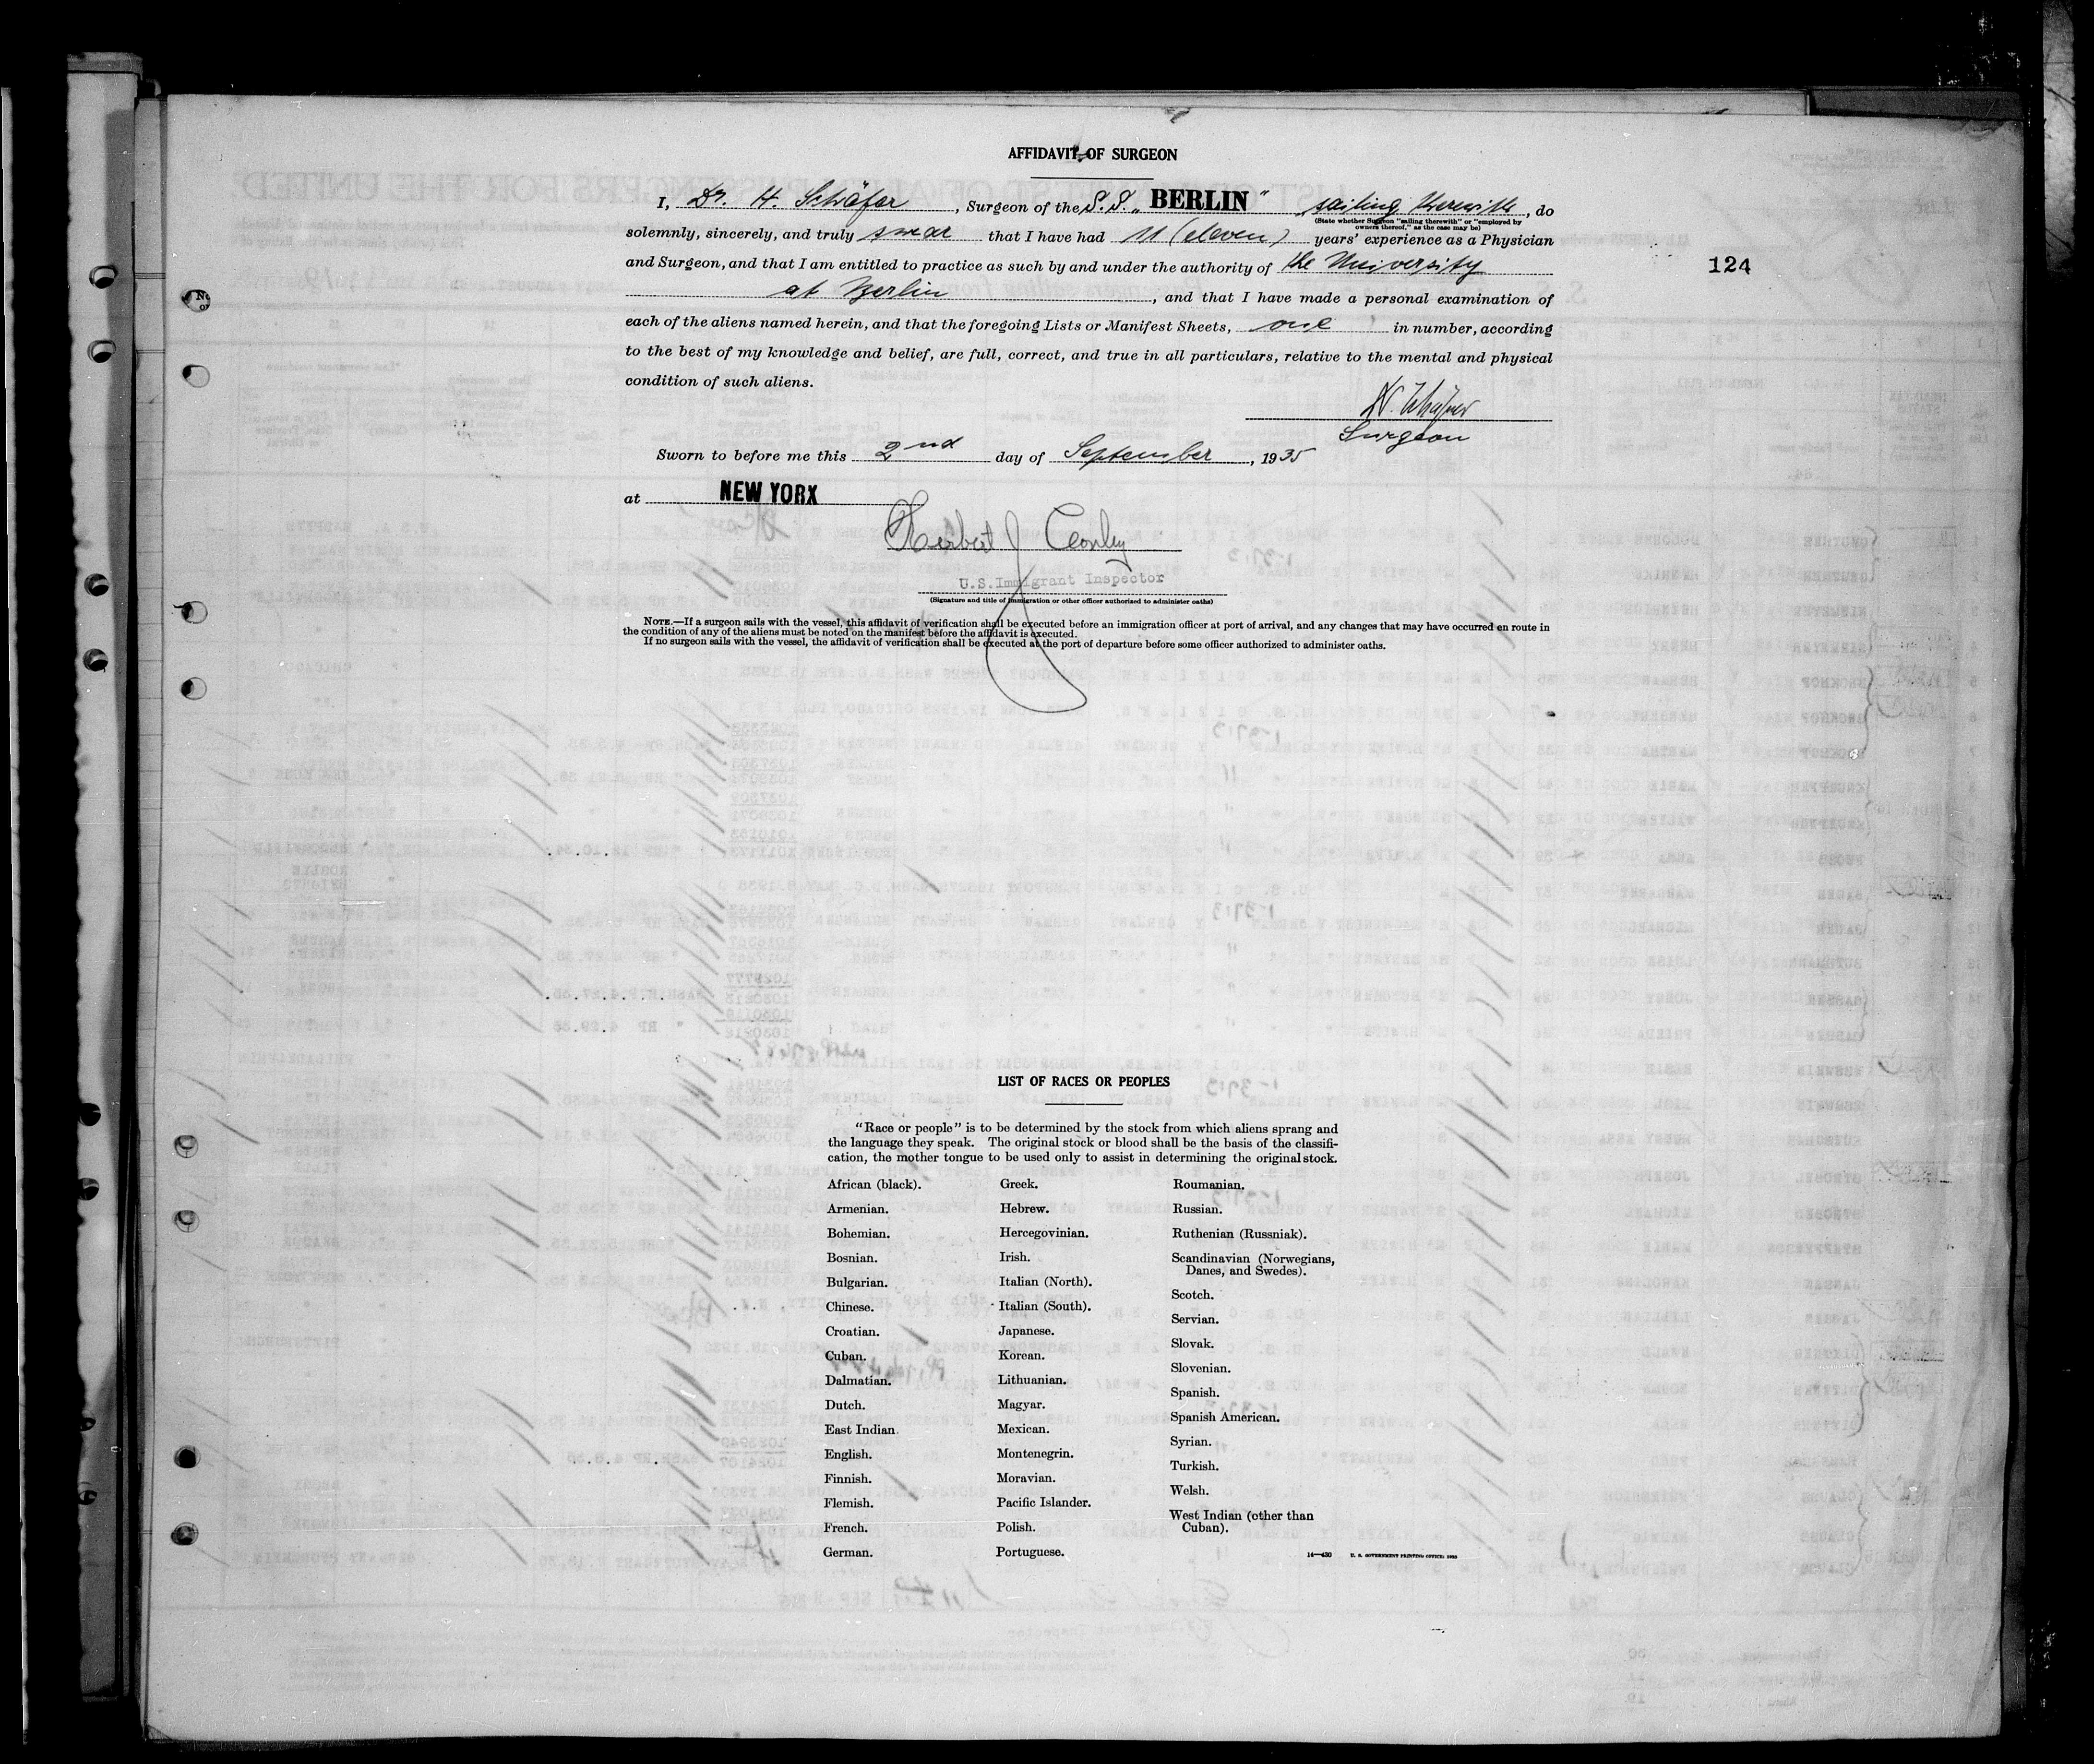 AFFIDAVIT OF SURGEON
I, Dr. H. Schäfer, Surgeon of the S.S. „BERLIN“ sailing therewith, do
(State whether Surgeon "sailing therewith" or "employed by
owners thereof," as the case may be)
solemnly, sincerely, and truly swear that I have had 11 (eleven) years' experience as a Physician
and Surgeon, and that I am entitled to practice as such by and under the authority of the University
124
at Berlin, and that I have made a personal examination of
each of the aliens named herein, and that the foregoing Lists or Manifest Sheets, one in number, according
to the best of my knowledge and belief, are full, correct, and true in all particulars, relative to the mental and physical
condition of such aliens.
Surgeon
Sworn to before me this 2nd day of September, 1935
at NEW YORK
Herbert J Conly
U.S. Immigrant Inspector
(Signature and title of immigration or other officer authorized to administer oaths)
NOTE.—If a surgeon sails with the vessel, this affidavit of verification shall be executed before an immigration officer at port of arrival, and any changes that may have occurred en route in
the condition of any of the aliens must be noted on the manifest before the affidavit is executed.
If no surgeon sails with the vessel, the affidavit of verification shall be executed at the port of departure before some officer authorized to administer oaths.
LIST OF RACES OR PEOPLES
"Race or people" is to be determined by the stock from which aliens sprang and
the language they speak. The original stock or blood shall be the basis of the classifi-
cation, the mother tongue to be used only to assist in determining the original stock.
African (black).
Armenian.
Bohemian.
Bosnian.
Bulgarian.
Chinese.
Croatian.
Cuban.
Dalmatian.
Dutch.
East Indian.
English.
Finnish.
Flemish.
French.
German.
Greek.
Hebrew.
Hercegovinian.
Irish.
Italian (North).
Italian (South).
Japanese.
Korean.
Lithuanian.
Magyar.
Mexican.
Montenegrin.
Moravian.
Pacific Islander.
Polish.
Portuguese.
Roumanian.
Russian.
Ruthenian (Russniak).
Scandinavian (Norwegians,
Danes, and Swedes).
Scotch.
Servian.
Slovak.
Slovenian.
Spanish.
Spanish American.
Syrian.
Turkish.
Welsh.
West Indian (other than
Cuban).
14—430 U. S. GOVERNMENT PRINTING OFFICE: